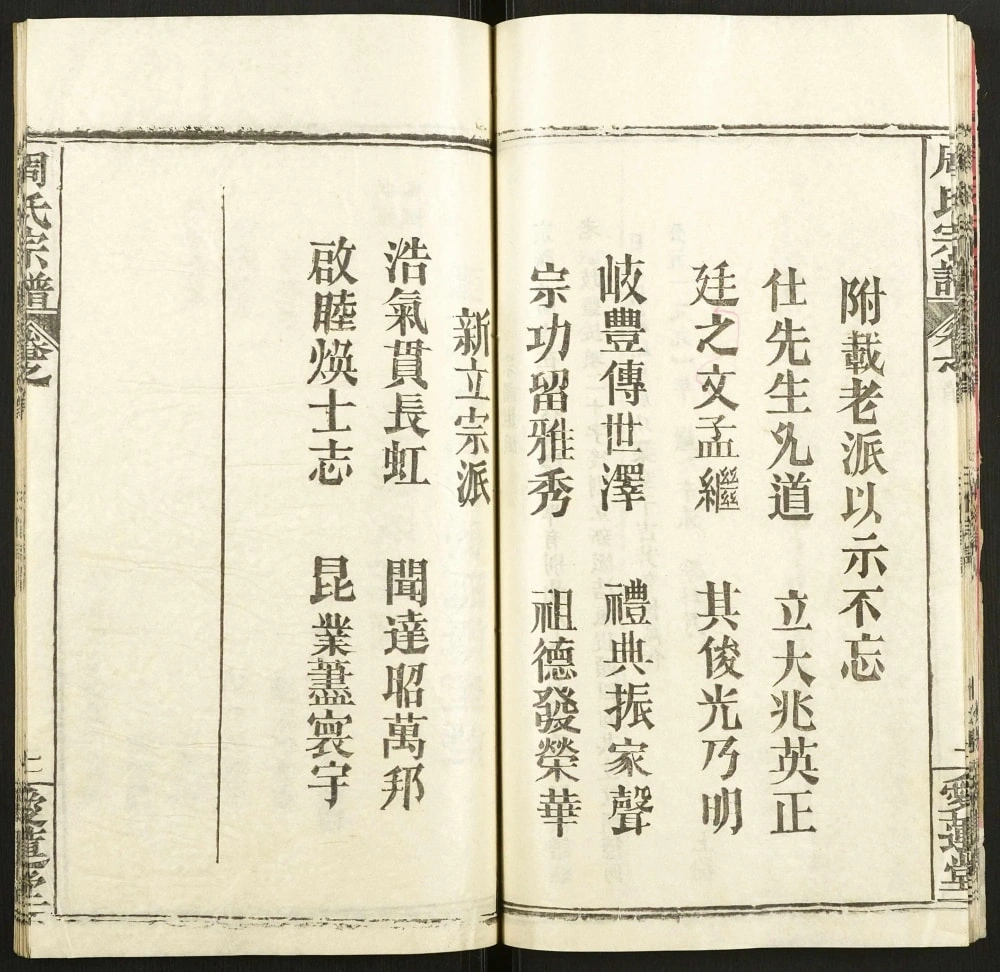 周氏宗譜
愛蓮堂
附載老派以示不忘
仕先生凡道 立大兆英正
廷之文孟繼 其俊光乃明
岐豐傳世澤 禮典振家聲
宗功留雅秀 祖德發榮華
新立宗派
浩氣貫長虹 聞達昭萬邦
啟睦煥士志 昆業藎寰宇
周氏宗譜
愛蓮堂